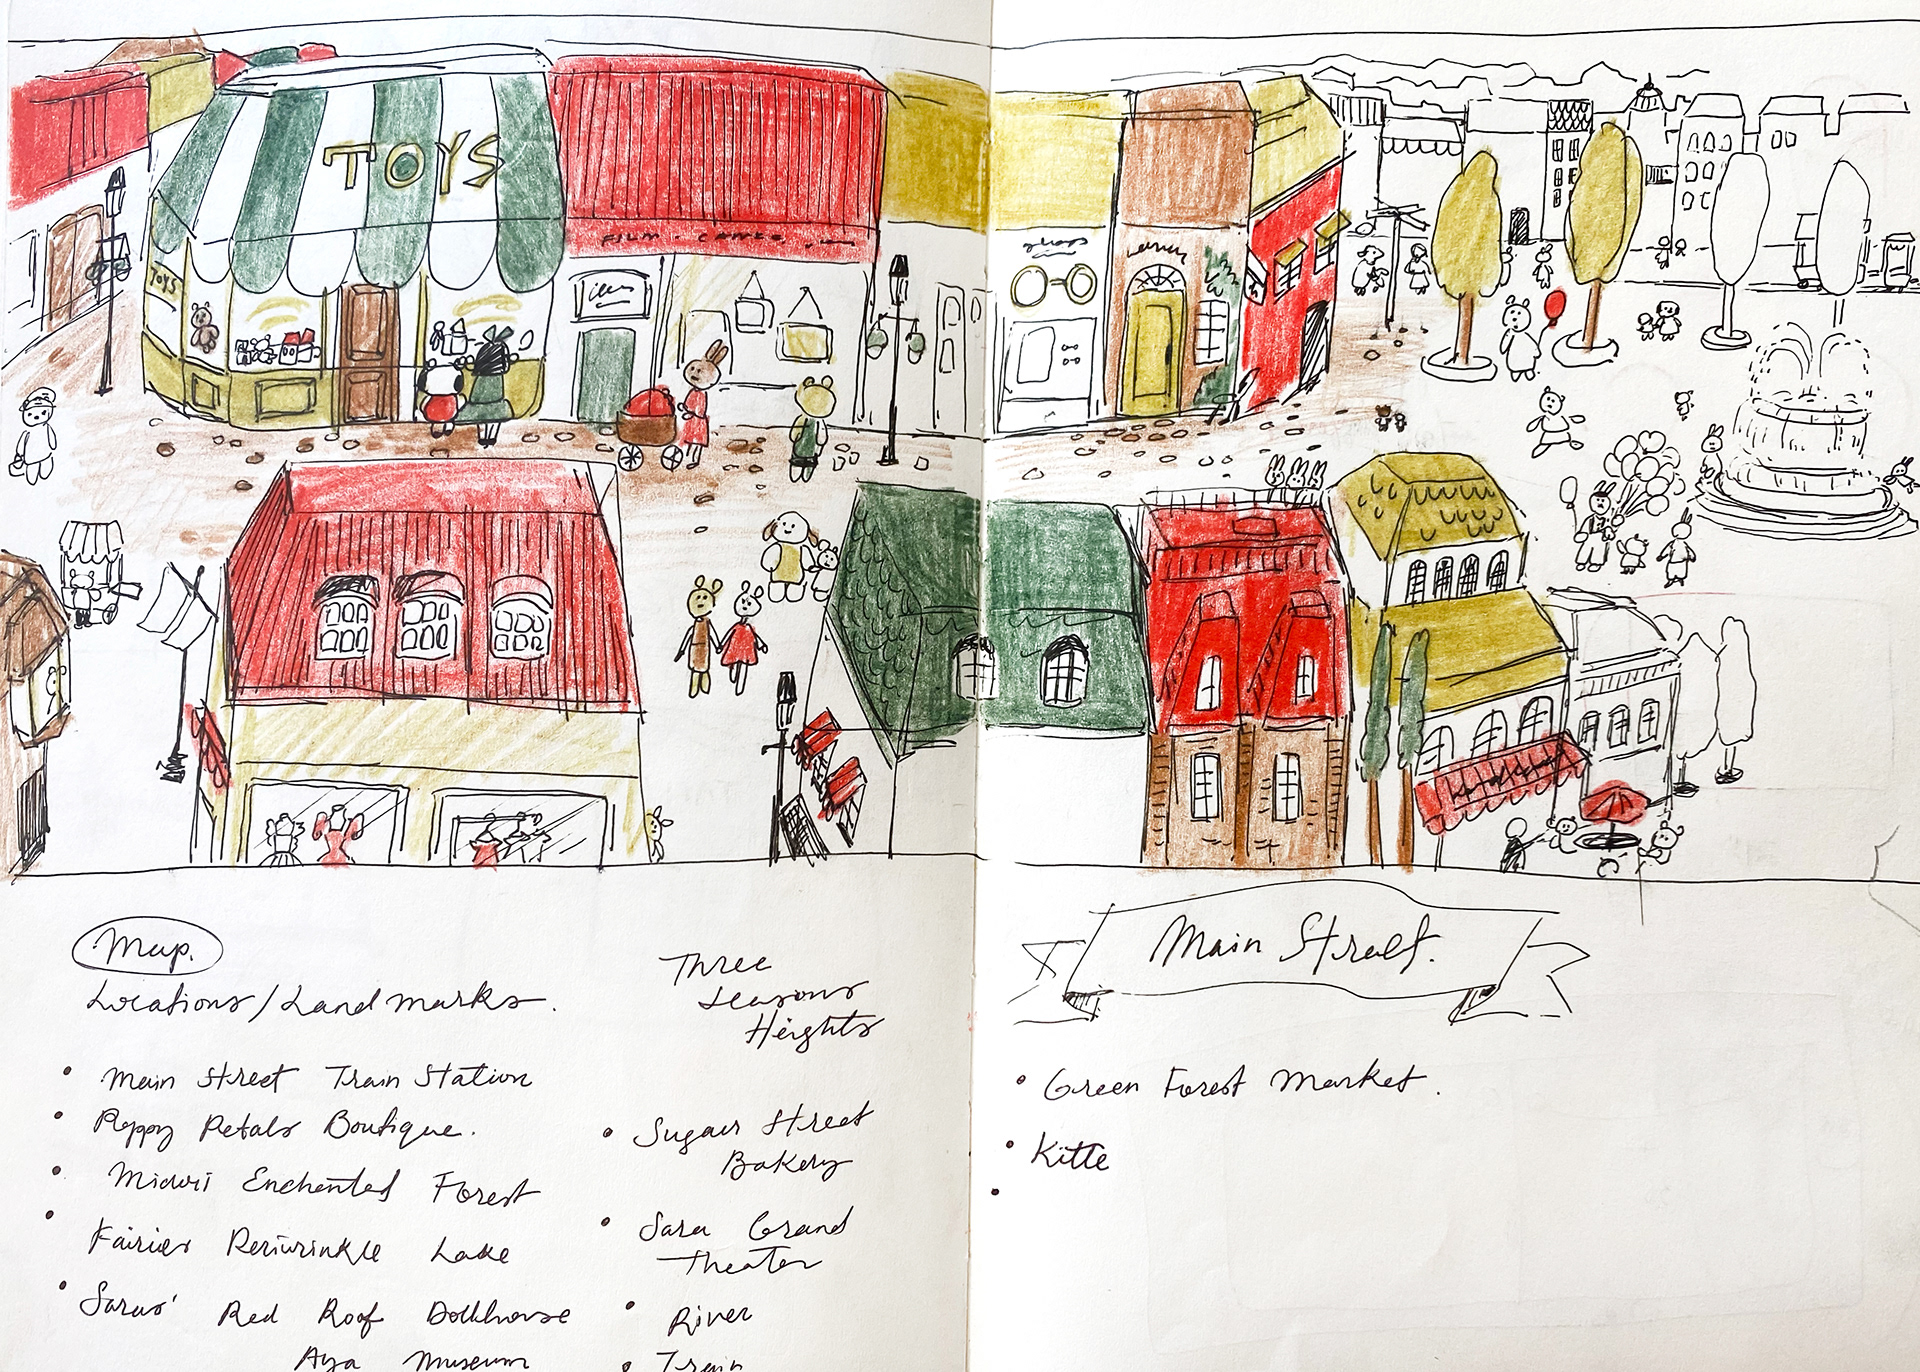 TOYS
TOYS
FILM
Map.
Locations/Landmarks.
Main Street Train Station
Poppy Petals Boutique.
Midori Enchanted Forest
Fairies Periwinkle Lake
Saras' Red Roof Dollhouse
Aya Museum
Three
Seasons
Heights
Sugar Street
Bakery
Sara Grand
Theater
River
Train
Main Street.
Green Forest Market.
Kitte